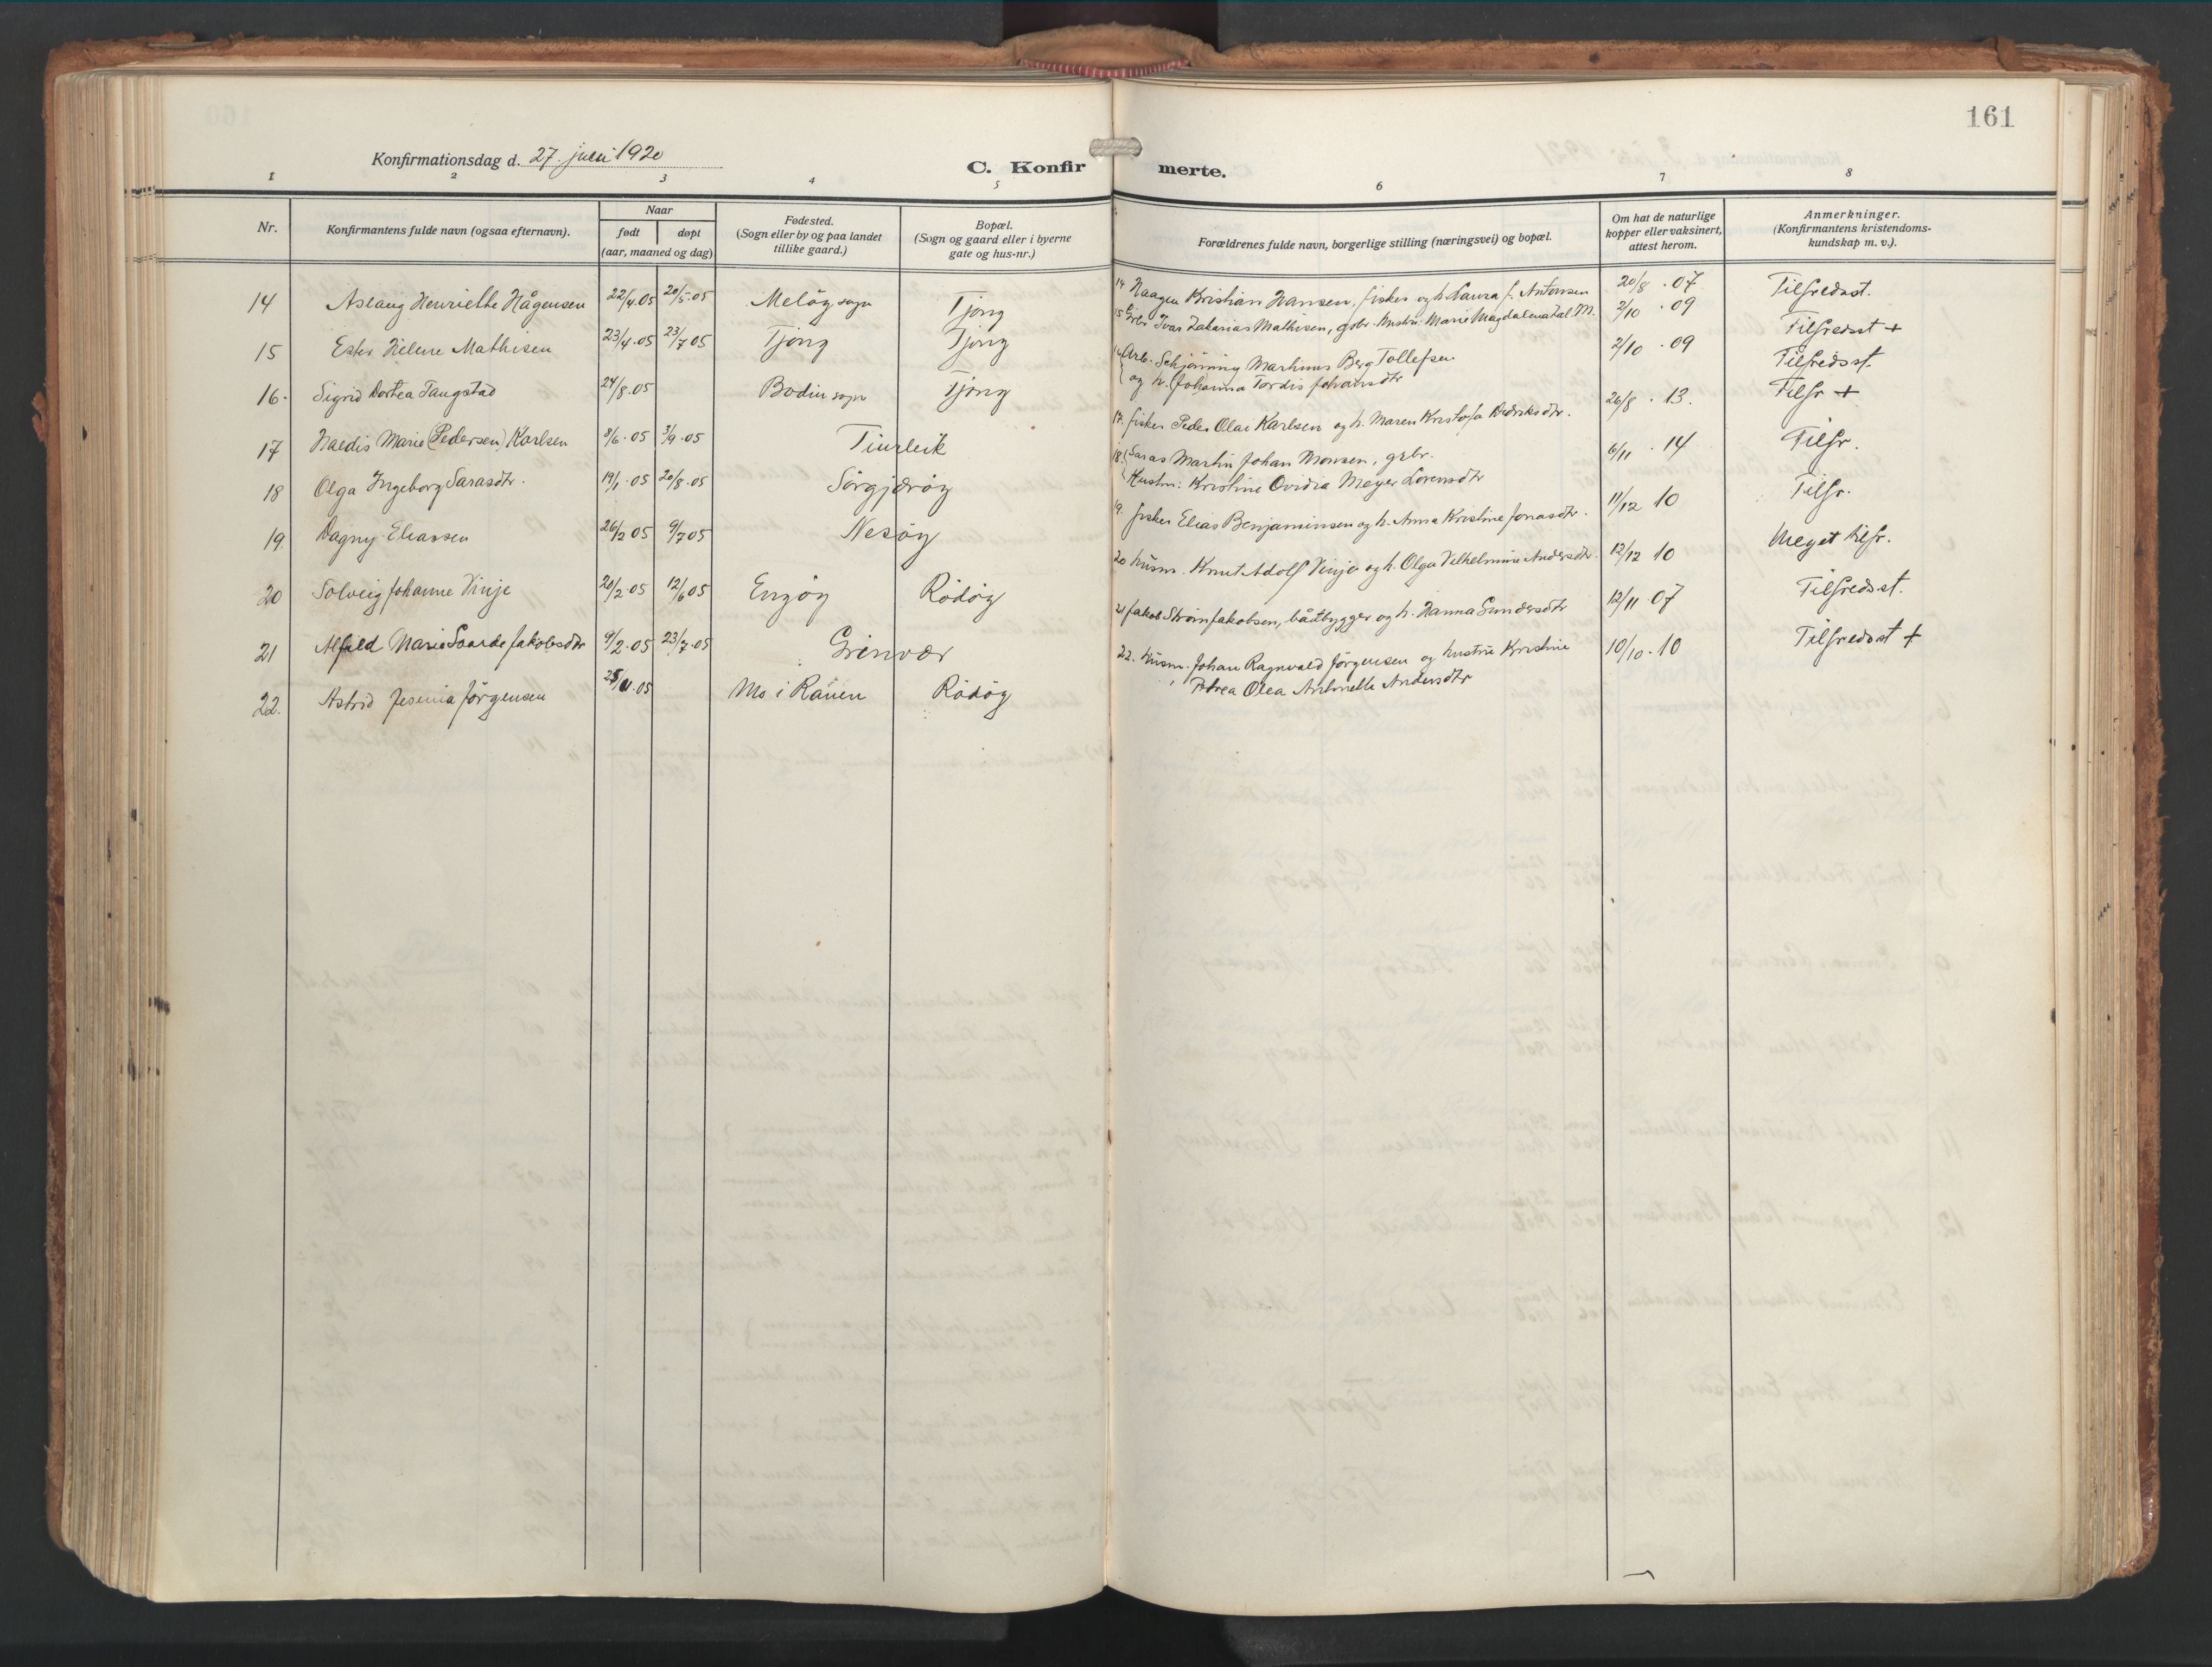 161
Konfirmationsdag d. 27. juni 1920
C. Konfirmerte.
1 2 3 4 5 6 7 8
Nr.
Konfirmantens fulde navn (ogsaa efternavn).
Naar
født døpt
(aar, maaned og dag)
Fødested.
(Sogn eller by og paa landet
tillike gaard.)
Bopæl.
(Sogn og gaard eller i byerne
gate og hus-nr.)
Forældrenes fulde navn, borgerlige stilling (næringsvei) og bopæl.
Om hat de naturlige
kopper eller vaksinert,
attest herom.
Anmerkninger.
(Konfirmantens kristendoms-
kundskap m. v.).
14 Aslaug Henriette Hågensen 22/4.05 20/5.05 Meløy sogn Tjong
15 Ester Helene Mathisen 23/4.05 23/7 05 Tjong Tjong
16. Sigrid Dortea Tangstad 24/8.05 Bodin sogn Tjong
17 Haldis Marie (Pedersen) Karlsen 8/6.05 3/9.05 Tiurleik
18 Olga Ingeborg Sarasdtr. 19/1.05 20/8.05 Sörgjæröy
19. Dagny Eliassen 26/2 05 9/7 05 Nesöy
20 Solveig Johanne Vinje 20/2.05 12/6 05 Engöy Rödöy
21 Alfild Marie Jakobsdtr 9/2.05 23/7.05 Grinvær
22. Astrid Jesenia Jörgensen Mo i Ranen Rödöy
14 Haagen Kristian Hansen, fisker og h. Laura f. Antonsen 20/8.07 Tilfredsst.
15 Ivar Zakarias Mathisen, gbr. Hustru: Marie Magdalena M. 2/10.09 Tilfredsst +
16 Arb. Schjönning Markinus Berg Tollefsen 2/10.09 Tilfredsst.
og h. Johanna Tordis Johansdtr
17. fisker Peder Olai Karlsen og h. Maren Kristofa Didriksdtr. 26/8.13. Tilfr +
18. Saras Martin Johan Monsen, gbr. 6/11.14 Tilfr.
Hustru: Kristine Ovidia Meyer Lorensdtr
19. fisker Elias Benjaminsen og h. Anna Kristine Jonasdtr. 11/12 10 Tilfr.
20 Husm. Knut Adolf Vinje og h. Olga Vilhelmine Andersdtr. 12/12 10 Meget tilfr.
21 Jakob Ström Jakobsen, båtbygger og h. Hanna Gundersdtr 12/11 07 Tilfredsst.
22. Husm. Johan Ragnvald Jörgensen og hustru Kristine 10/10.10 Tilfredsst +
Petrea Olea Antonette Andersdtr